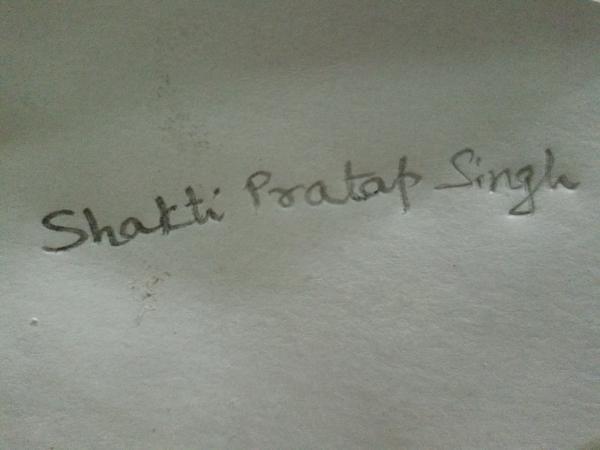 Shakti Pratap Singh